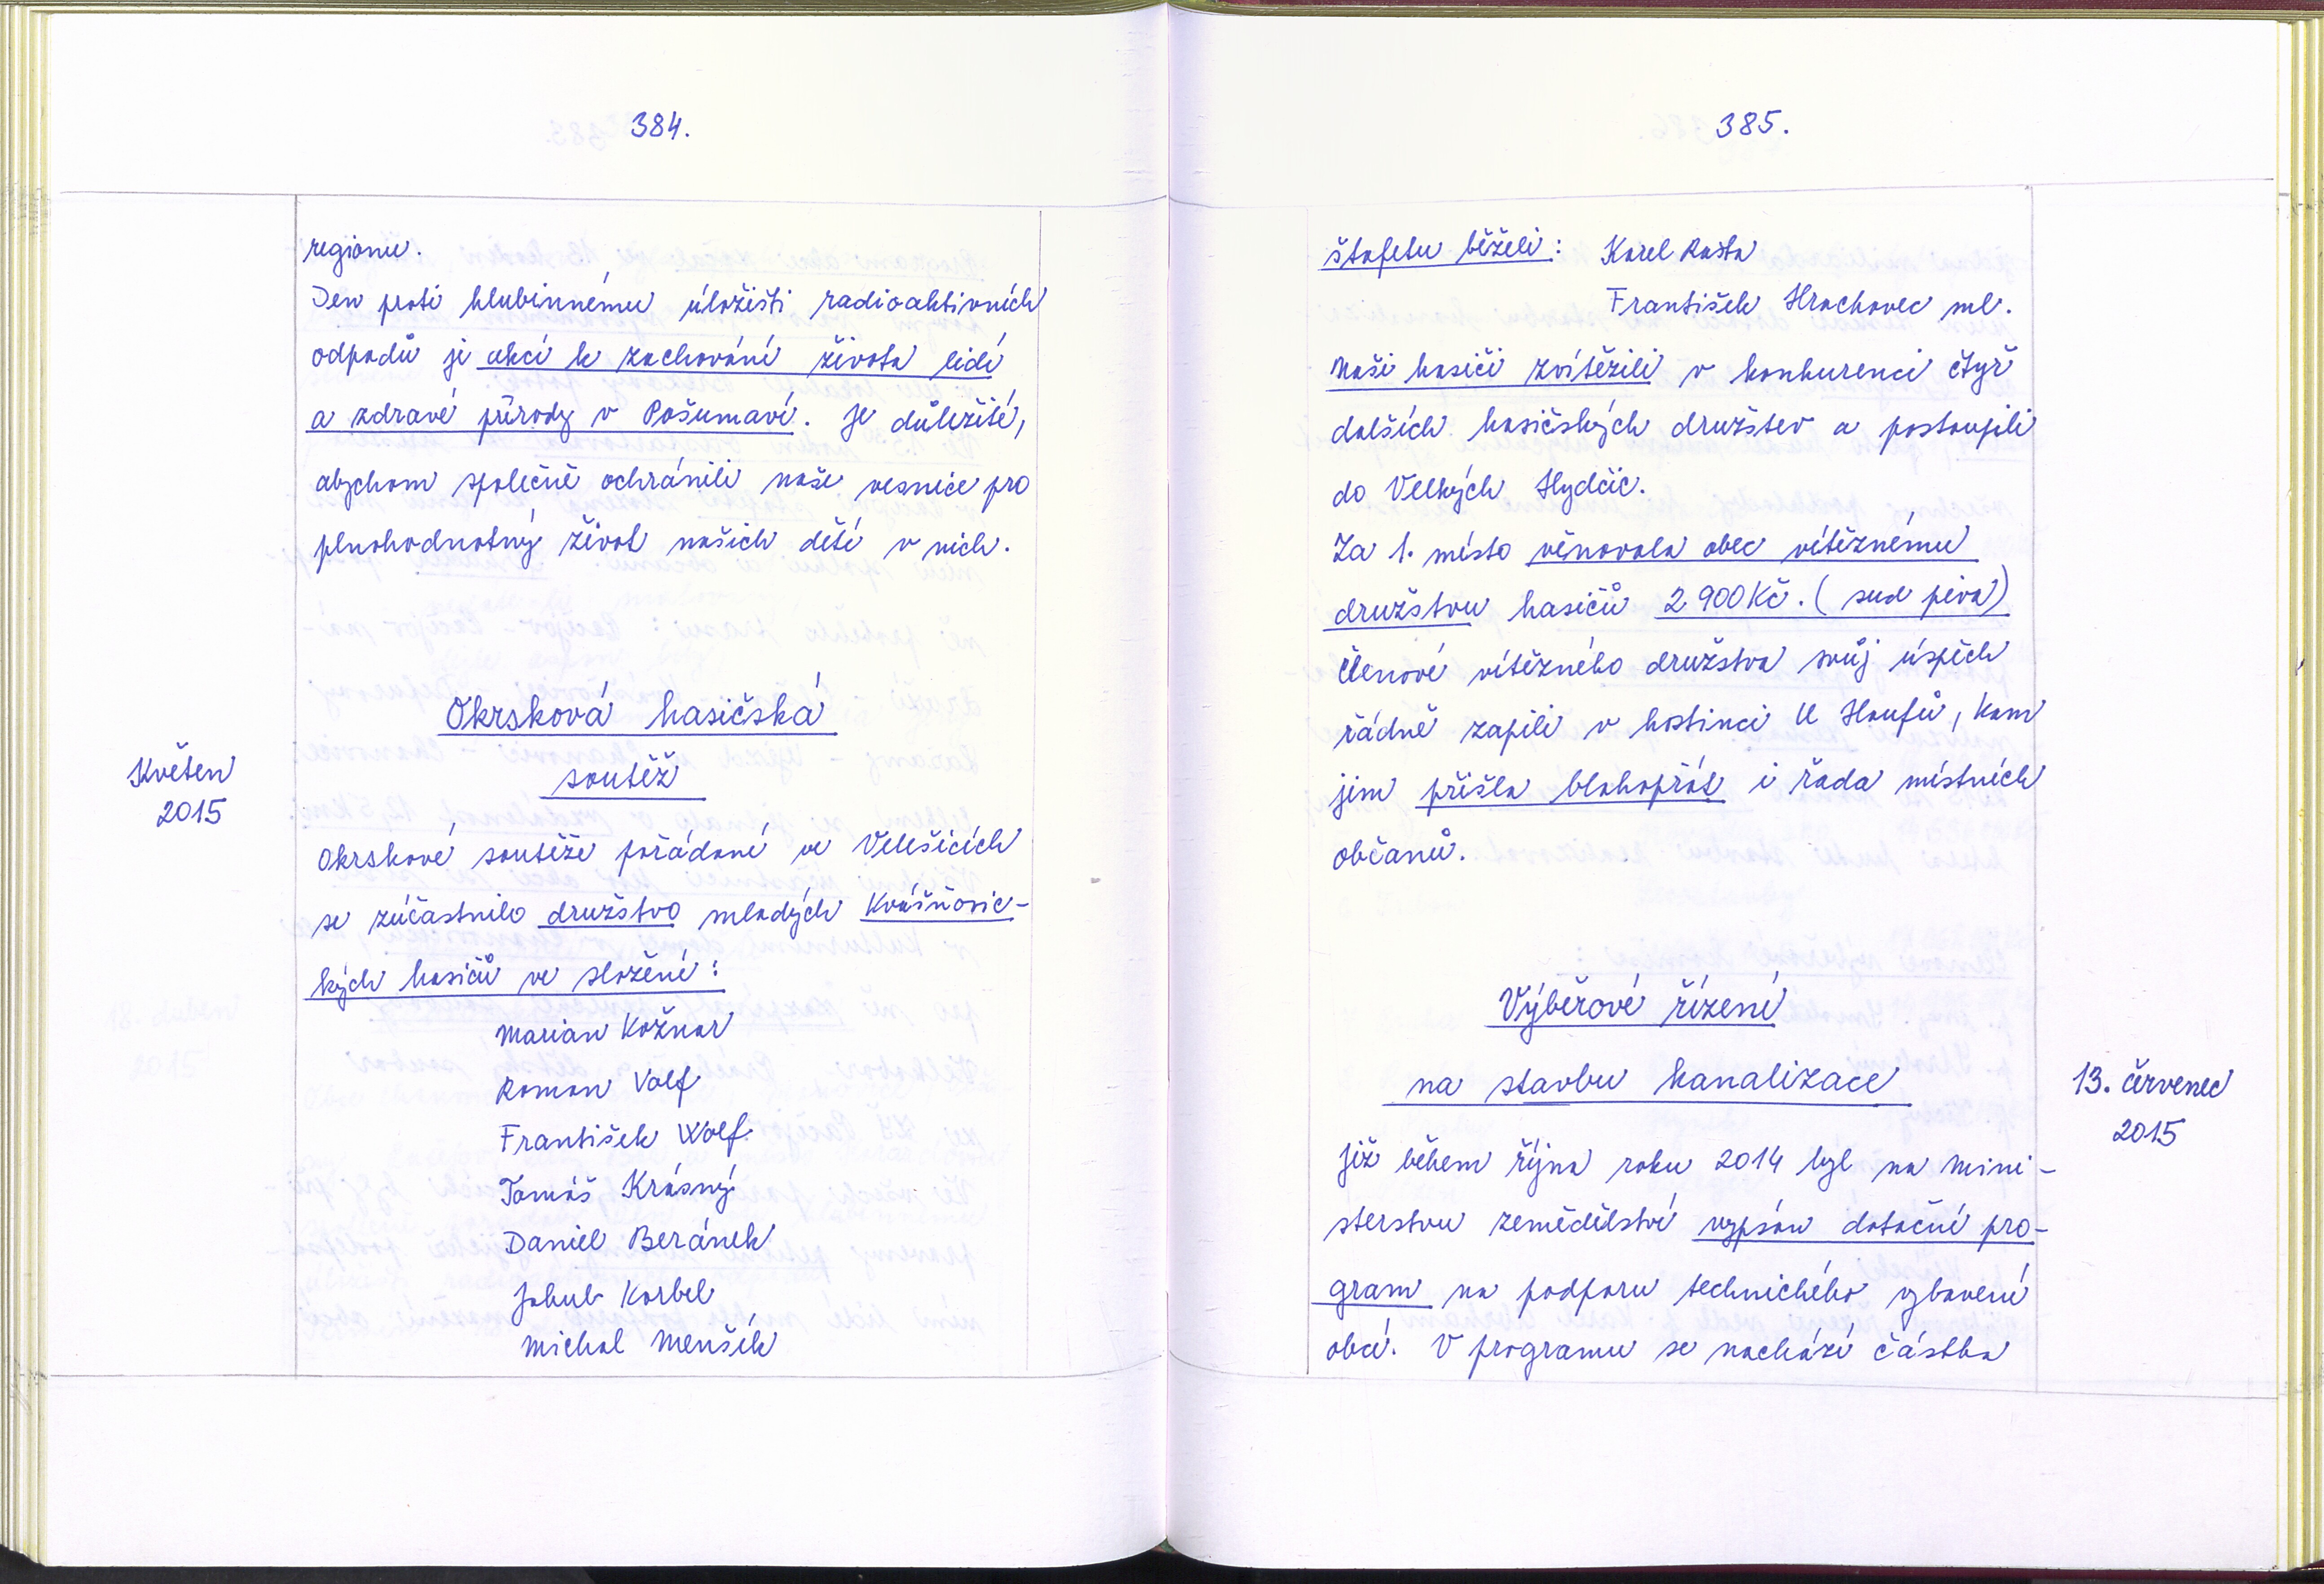 384.
regionu.
Den proti hlubinnému úložišti radioaktivních
odpadů je akcí k zachování života lidí
a zdravé přírody v Pošumaví. Je důležité,
abychom společně ochránili naše vesnice pro
plnohodnotný život našich dětí v nich.
Okrsková hasičská
soutěž
Květen
2015
Okrskové soutěže pořádané ve Velešicích
se zúčastnilo družstvo mladých Kvášňovic-
kých hasičů ve složení:
Marian Kožnar
Roman Volf
František Wolf
Tomáš Krásný
Daniel Beránek
Jakub Korbel
Michal Menšík
385.
štafetu běželi: Karel Rašta
František Hrachovec ml.
Naši hasiči zvítězili v konkurenci čtyř
dalších hasičských družstev a postoupili
do Velkých Hydčic.
Za 1. místo věnovala obec vítěznému
družstvu hasičů 2 900 Kč. (sud piva)
Členové vítězného družstva svůj úspěch
řádně zapili v hostinci U Houfů, kam
jim přišla blahopřát i řada místních
občanů.
Výběrové řízení
na stavbu kanalizace
13. červenec
2015
Již během října roku 2014 byl na mini-
sterstvu zemědělství vypsán dotační pro-
gram na podporu technického vybavení
obcí. V programu se nachází částka